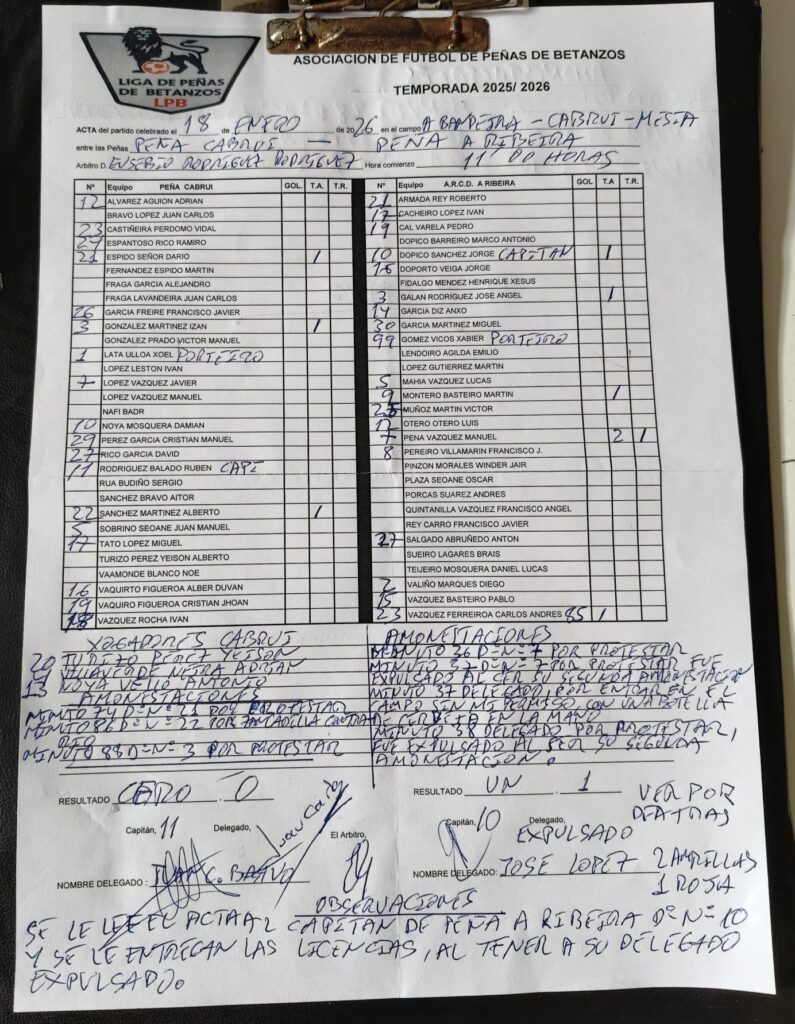 LIGA DE PEÑAS
DE BETANZOS
LPB
ASOCIACION DE FUTBOL DE PEÑAS DE BETANZOS
TEMPORADA 2025/ 2026
ACTA del partido celebrado el 18 de ENERO de 2026 en el campo A BANDEIRA - CABRUI - MESIA
entre las Peñas PEÑA CABRUI — PEÑA A RIBEIRA
Arbitro D. EUSEBIO RODRIGUEZ RODRIGUEZ Hora comienzo 11'00 HORAS
Nº Equipo PEÑA CABRUI GOL. T.A. T.R.
12 ALVAREZ AGUION ADRIAN
BRAVO LOPEZ JUAN CARLOS
23 CASTIÑEIRA PERDOMO VIDAL
ESPANTOSO RICO RAMIRO
21 ESPIDO SEÑOR DARIO 1
FERNANDEZ ESPIDO MARTIN
FRAGA GARCIA ALEJANDRO
FRAGA LAVANDEIRA JUAN CARLOS
26 GARCIA FREIRE FRANCISCO JAVIER
3 GONZALEZ MARTINEZ IZAN 1
GONZALEZ PRADO VICTOR MANUEL
1 LATA ULLOA XOEL PORTEIRO
LOPEZ LESTON IVAN
7 LOPEZ VAZQUEZ JAVIER
LOPEZ VAZQUEZ MANUEL
NAFI BADR
10 NOYA MOSQUERA DAMIAN
29 PEREZ GARCIA CRISTIAN MANUEL
27 RICO GARCIA DAVID
11 RODRIGUEZ BALADO RUBEN CAPI
RUA BUDIÑO SERGIO
SANCHEZ BRAVO AITOR
22 SANCHEZ MARTINEZ ALBERTO 1
5 SOBRINO SEOANE JUAN MANUEL
17 TATO LOPEZ MIGUEL
TURIZO PEREZ YEISON ALBERTO
VAAMONDE BLANCO NOE
16 VAQUIRTO FIGUEROA ALBER DUVAN
19 VAQUIRO FIGUEROA CRISTIAN JHOAN
18 VAZQUEZ ROCHA IVAN
Nº Equipo A.R.C.D. A RIBEIRA GOL T.A T.R.
21 ARMADA REY ROBERTO
17 CACHEIRO LOPEZ IVAN
19 CAL VARELA PEDRO
DOPICO BARREIRO MARCO ANTONIO
10 DOPICO SANCHEZ JORGE CAPITAN 1
16 DOPORTO VEIGA JORGE
FIDALGO MENDEZ HENRIQUE XESUS
3 GALAN RODRIGUEZ JOSE ANGEL 1
14 GARCIA DIZ ANXO
30 GARCIA MARTINEZ MIGUEL
99 GOMEZ VICOS XABIER PORTEIRO
LENDOIRO AGILDA EMILIO
LOPEZ GUTIERREZ MARTIN
5 MAHIA VAZQUEZ LUCAS
9 MONTERO BASTEIRO MARTIN 1
MUÑOZ MARTIN VICTOR
OTERO OTERO LUIS
7 PENA VAZQUEZ MANUEL 2 1
8 PEREIRO VILLAMARIN FRANCISCO J.
PINZON MORALES WINDER JAIR
PLAZA SEOANE OSCAR
PORCAS SUAREZ ANDRES
QUINTANILLA VAZQUEZ FRANCISCO ANGEL
REY CARRO FRANCISCO JAVIER
27 SALGADO ABRUÑEDO ANTON
SUEIRO LAGARES BRAIS
TEIJEIRO MOSQUERA DANIEL LUCAS
2 VALIÑO MARQUES DIEGO
15 VAZQUEZ BASTEIRO PABLO
23 VAZQUEZ FERREIROA CARLOS ANDRES 85 1
XOGADORES CABRUI
20 TURIZO PEREZ YEISON
VILLAVERDE NEIRA ADRIAN
13 ANTONIO
AMONESTACIONES
MINUTO D-Nº 21 POR PROTESTAR
MINUTO 86 D-Nº 22 POR ZANCADILLA CONTRA
RIO
MINUTO 88 D-Nº 3 POR PROTESTAR
AMONESTACIONES
MINUTO 26 D-Nº 7 POR PROTESTAR
MINUTO 37 D-Nº 7 POR PROTESTAR FUE
EXPULSADO AL SER SU SEGUNDA AMONESTACION
MINUTO 37 DELEGADO, POR ENTRAR EN EL
CAMPO SIN MI PERMISO, CON UNA BOTELLA
DE CERVEZA EN LA MANO
MINUTO 38 DELEGADO POR PROTESTAR,
FUE EXPULSADO AL SER SU SEGUNDA
AMONESTACION.
RESULTADO CERO . 0
RESULTADO UN . 1
VER POR
DETRAS
Capitán, 11 Delegado, El Arbitro, Capitán, 10 Delegado,
EXPULSADO
NOMBRE DELEGADO :
NOMBRE DELEGADO: JOSE LOPEZ 2 AMARILLAS
1 ROJA
OBSERVACIONES
SE LE LEE EL ACTA AL CAPITAN DE PEÑA A RIBEIRA Dº Nº 10
Y SE LE ENTREGAN LAS LICENCIAS, AL TENER A SU DELEGADO
EXPULSADO.